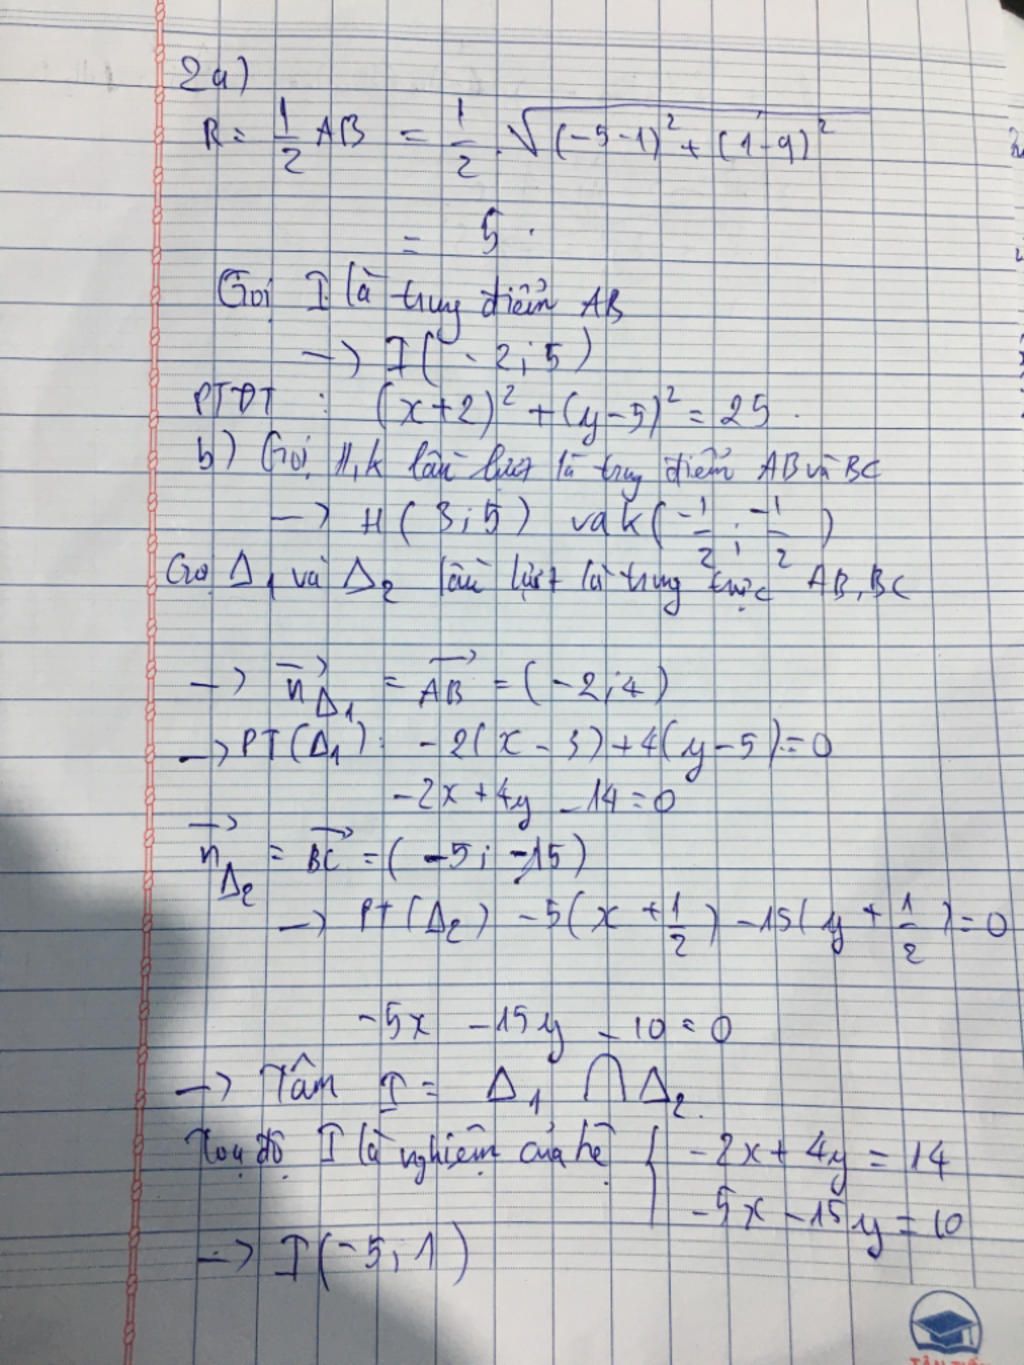 2a)
R = 1/2 AB = 1/2 . √((-5-1)² + (1-9)²)
= 5.
Gọi I là trung điểm AB
→ I(-2; 5)
PTĐT : (x+2)² + (y-5)² = 25.
b) Gọi H, k lần lượt là trung điểm AB và BC
→ H(3; 5) và k(-1/2; -1/2)
Gọi Δ1 và Δ2 lần lượt là trung trực AB, BC
→ n⃗Δ1 = AB⃗ = (-2; 4)
→ PT(Δ1): -2(x-3) + 4(y-5) = 0
-2x + 4y - 14 = 0
n⃗Δ2 = BC⃗ = (-5; -15)
→ PT(Δ2) -5(x + 1/2) - 15(y + 1/2) = 0
-5x - 15y - 10 = 0
→ Tâm I = Δ1 ∩ Δ2.
Toạ độ I là nghiệm của hệ { -2x + 4y = 14
-5x - 15y = 10
→ I(-5; 1)